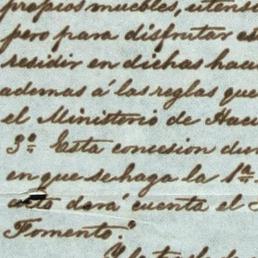 propios muebles, utens
pero para disfrutar es
residir en dichas haci
ademas á las reglas que
el Ministerio de Haci
3ª Esta concesion du
en que se haga la 1ª
dará cuenta el
Fomento."